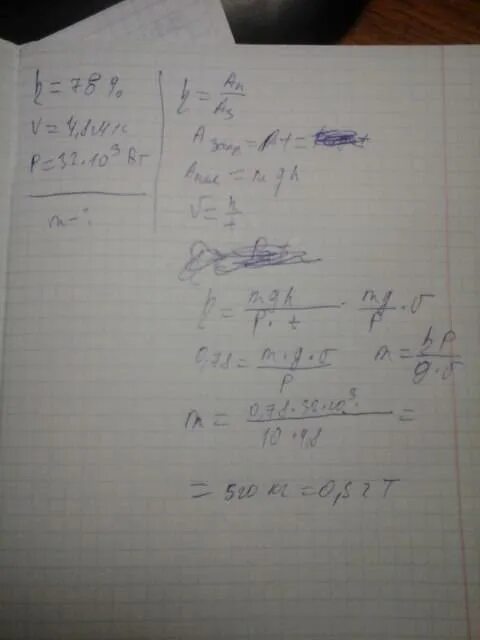 η = 78 %
v = 4,8 м/с
P = 32·10³ Вт
m - ?
η = Aп/Aз
A затр = Pt =
A пол = mgh
v = h/t
η = mgh/(P·t) · mg/P · v
0,78 = m·g·v/P m = ηP/(g·v)
m = 0,78·32·10³/(10·4,8) =
= 520 кг = 0,52 т